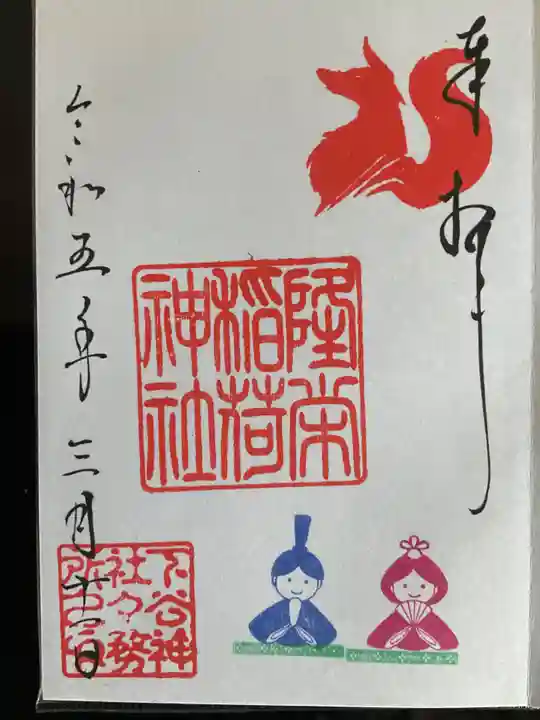 奉拝
隆栄
稲荷
神社
令和五年三月十二日
下谷神
社々務
所之印